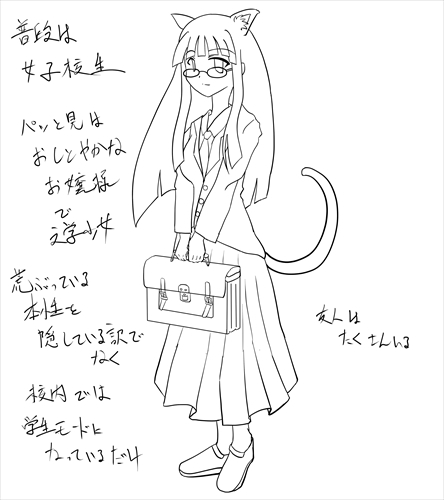 普段は
女子校生
パッと見は
おしとやかな
お嬢様
で
文学少女
荒ぶっている
本性を
隠している訳で
なく
校内では
学生モードに
なっているだけ
友人は
たくさんいる